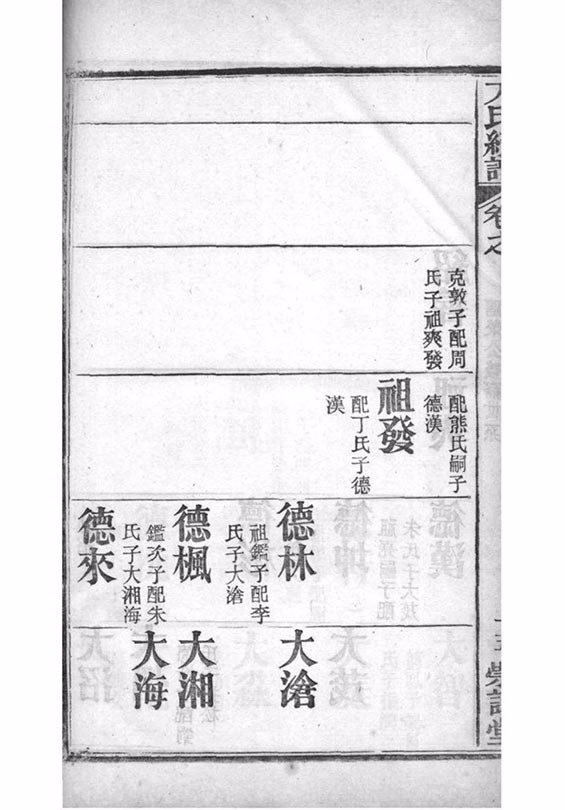 卷之
克敦子配周
氏子祖爽發
配熊氏嗣子
德漢
祖發
配丁氏子德
漢
德林
祖鑑子配李
氏子大滄
德楓
鑑次子配朱
氏子大湘海
德來
大滄
大湘
大海